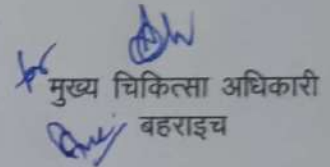 मुख्य चिकित्सा अधिकारी
बहराइच